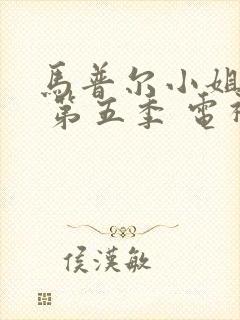 馬普尔小姐
第五季 電
侯漢敏